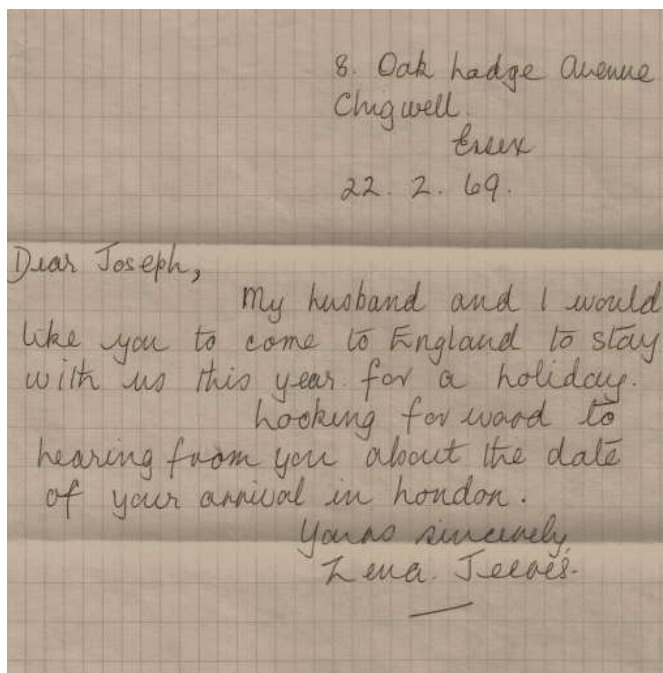 8. Oak Lodge Avenue
Chigwell.
Essex
22. 2. 69.
Dear Joseph,
My husband and I would
like you to come to England to stay
with us this year for a holiday.
Looking forward to
hearing from you about the date
of your arrival in London.
Yours sincerely,
Lena. Jeeves.